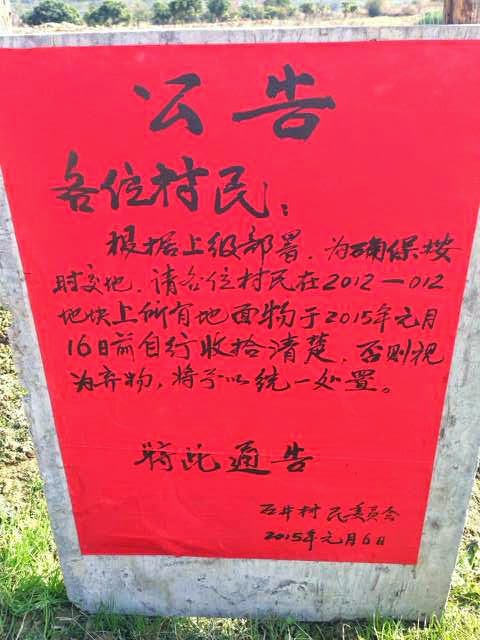 公告
各位村民：
根据上级部署，为确保按
时交地，请各位村民在2012—012
地块上所有地面物于2015年元月
16日前自行收拾清楚，否则视
为弃物，将予以统一处置。
特此通告
石井村民委员会
2015年元月6日